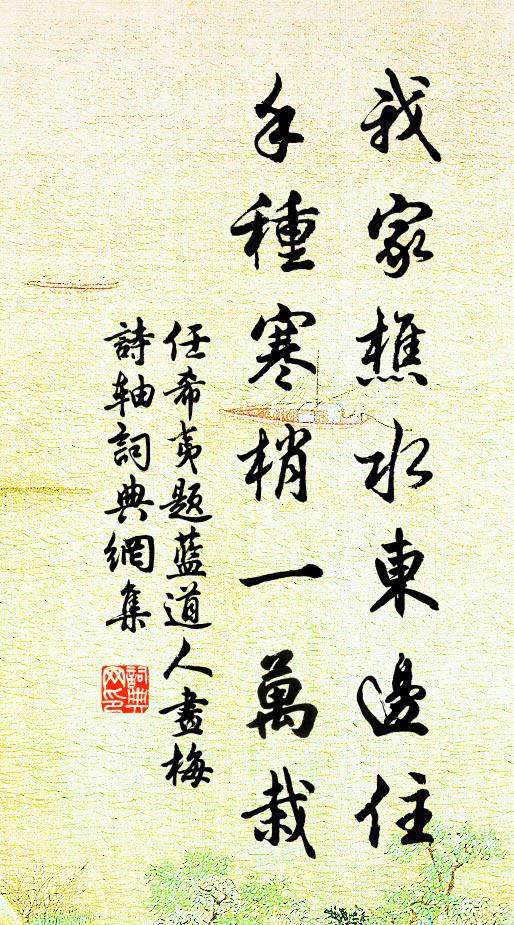 我家樵水東邊住
手種寒梢一萬栽
任希夷題藍道人畫梅
詩軸詞典網集
詞典網印